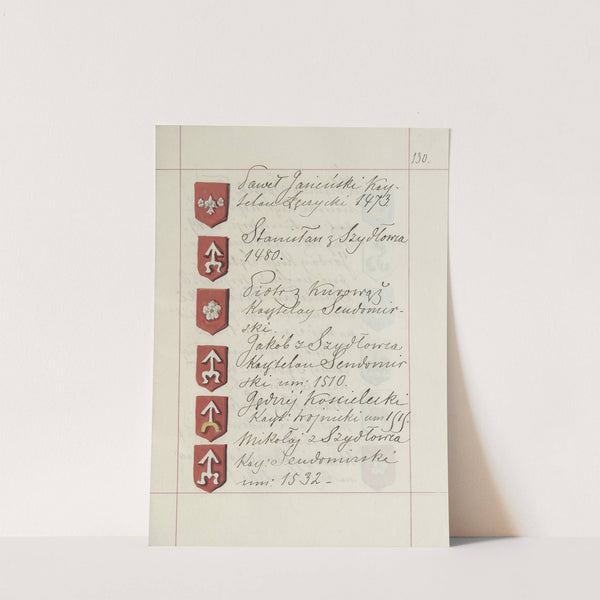 130.
Paweł Jasieński Kay-
telan Łęczycki 1473
Stanisłan z Szydłowca
1480.
Piotr z Kurowąż
Kasztelay Sendomir-
ski.
Jakób z Szydłowca
Kasztelan Sendomir
ski um: 1510.
Jędrzéj Kościelecki
Kaszt: Wojnicki um 1515.
Mikołaj z Szydłowca
Kay: Sendomirski
um: 1532 -